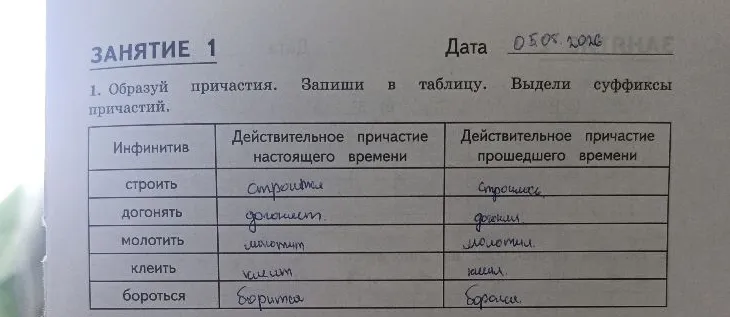 ЗАНЯТИЕ 1 Дата 05.05.2026
1. Образуй причастия. Запиши в таблицу. Выдели суффиксы
причастий.
Инфинитив Действительное причастие настоящего времени Действительное причастие прошедшего времени
строить строится строились
догонять догоняет догонял
молотить молотит молотил
клеить клеит клеил
бороться борится боролся